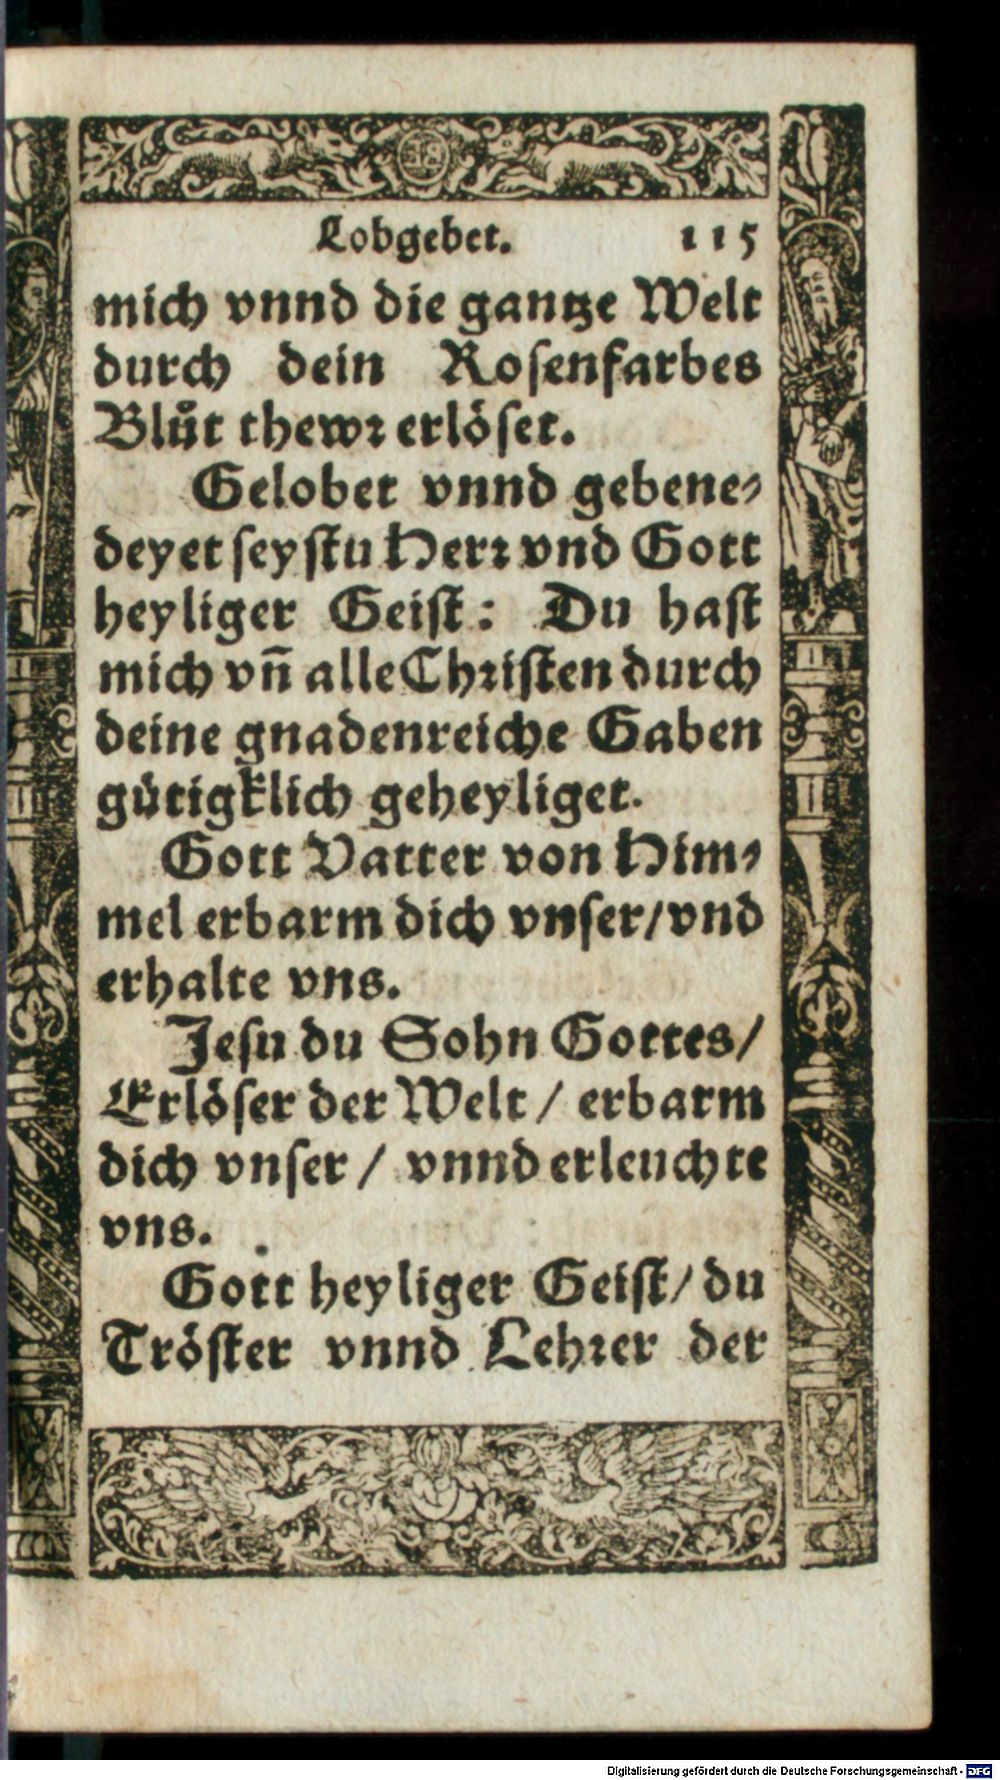 Lobgebet. 115
mich vnnd die gantze Welt
durch dein Rosenfarbes
Blůt thewr erlöset.
Gelobet vnnd gebene-
deyet seystu Herr vnd Gott
heyliger Geist: Du hast
mich vñ alle Christen durch
deine gnadenreiche Gaben
gütigklich geheyliget.
Gott Vatter von Him-
mel erbarm dich vnser/vnd
erhalte vns.
Jesu du Sohn Gottes/
Erlöser der Welt / erbarm
dich vnser / vnnd erleuchte
vns.
Gott heyliger Geist/du
Tröster vnnd Lehrer der
Digitalisierung gefördert durch die Deutsche Forschungsgemeinschaft - DFG